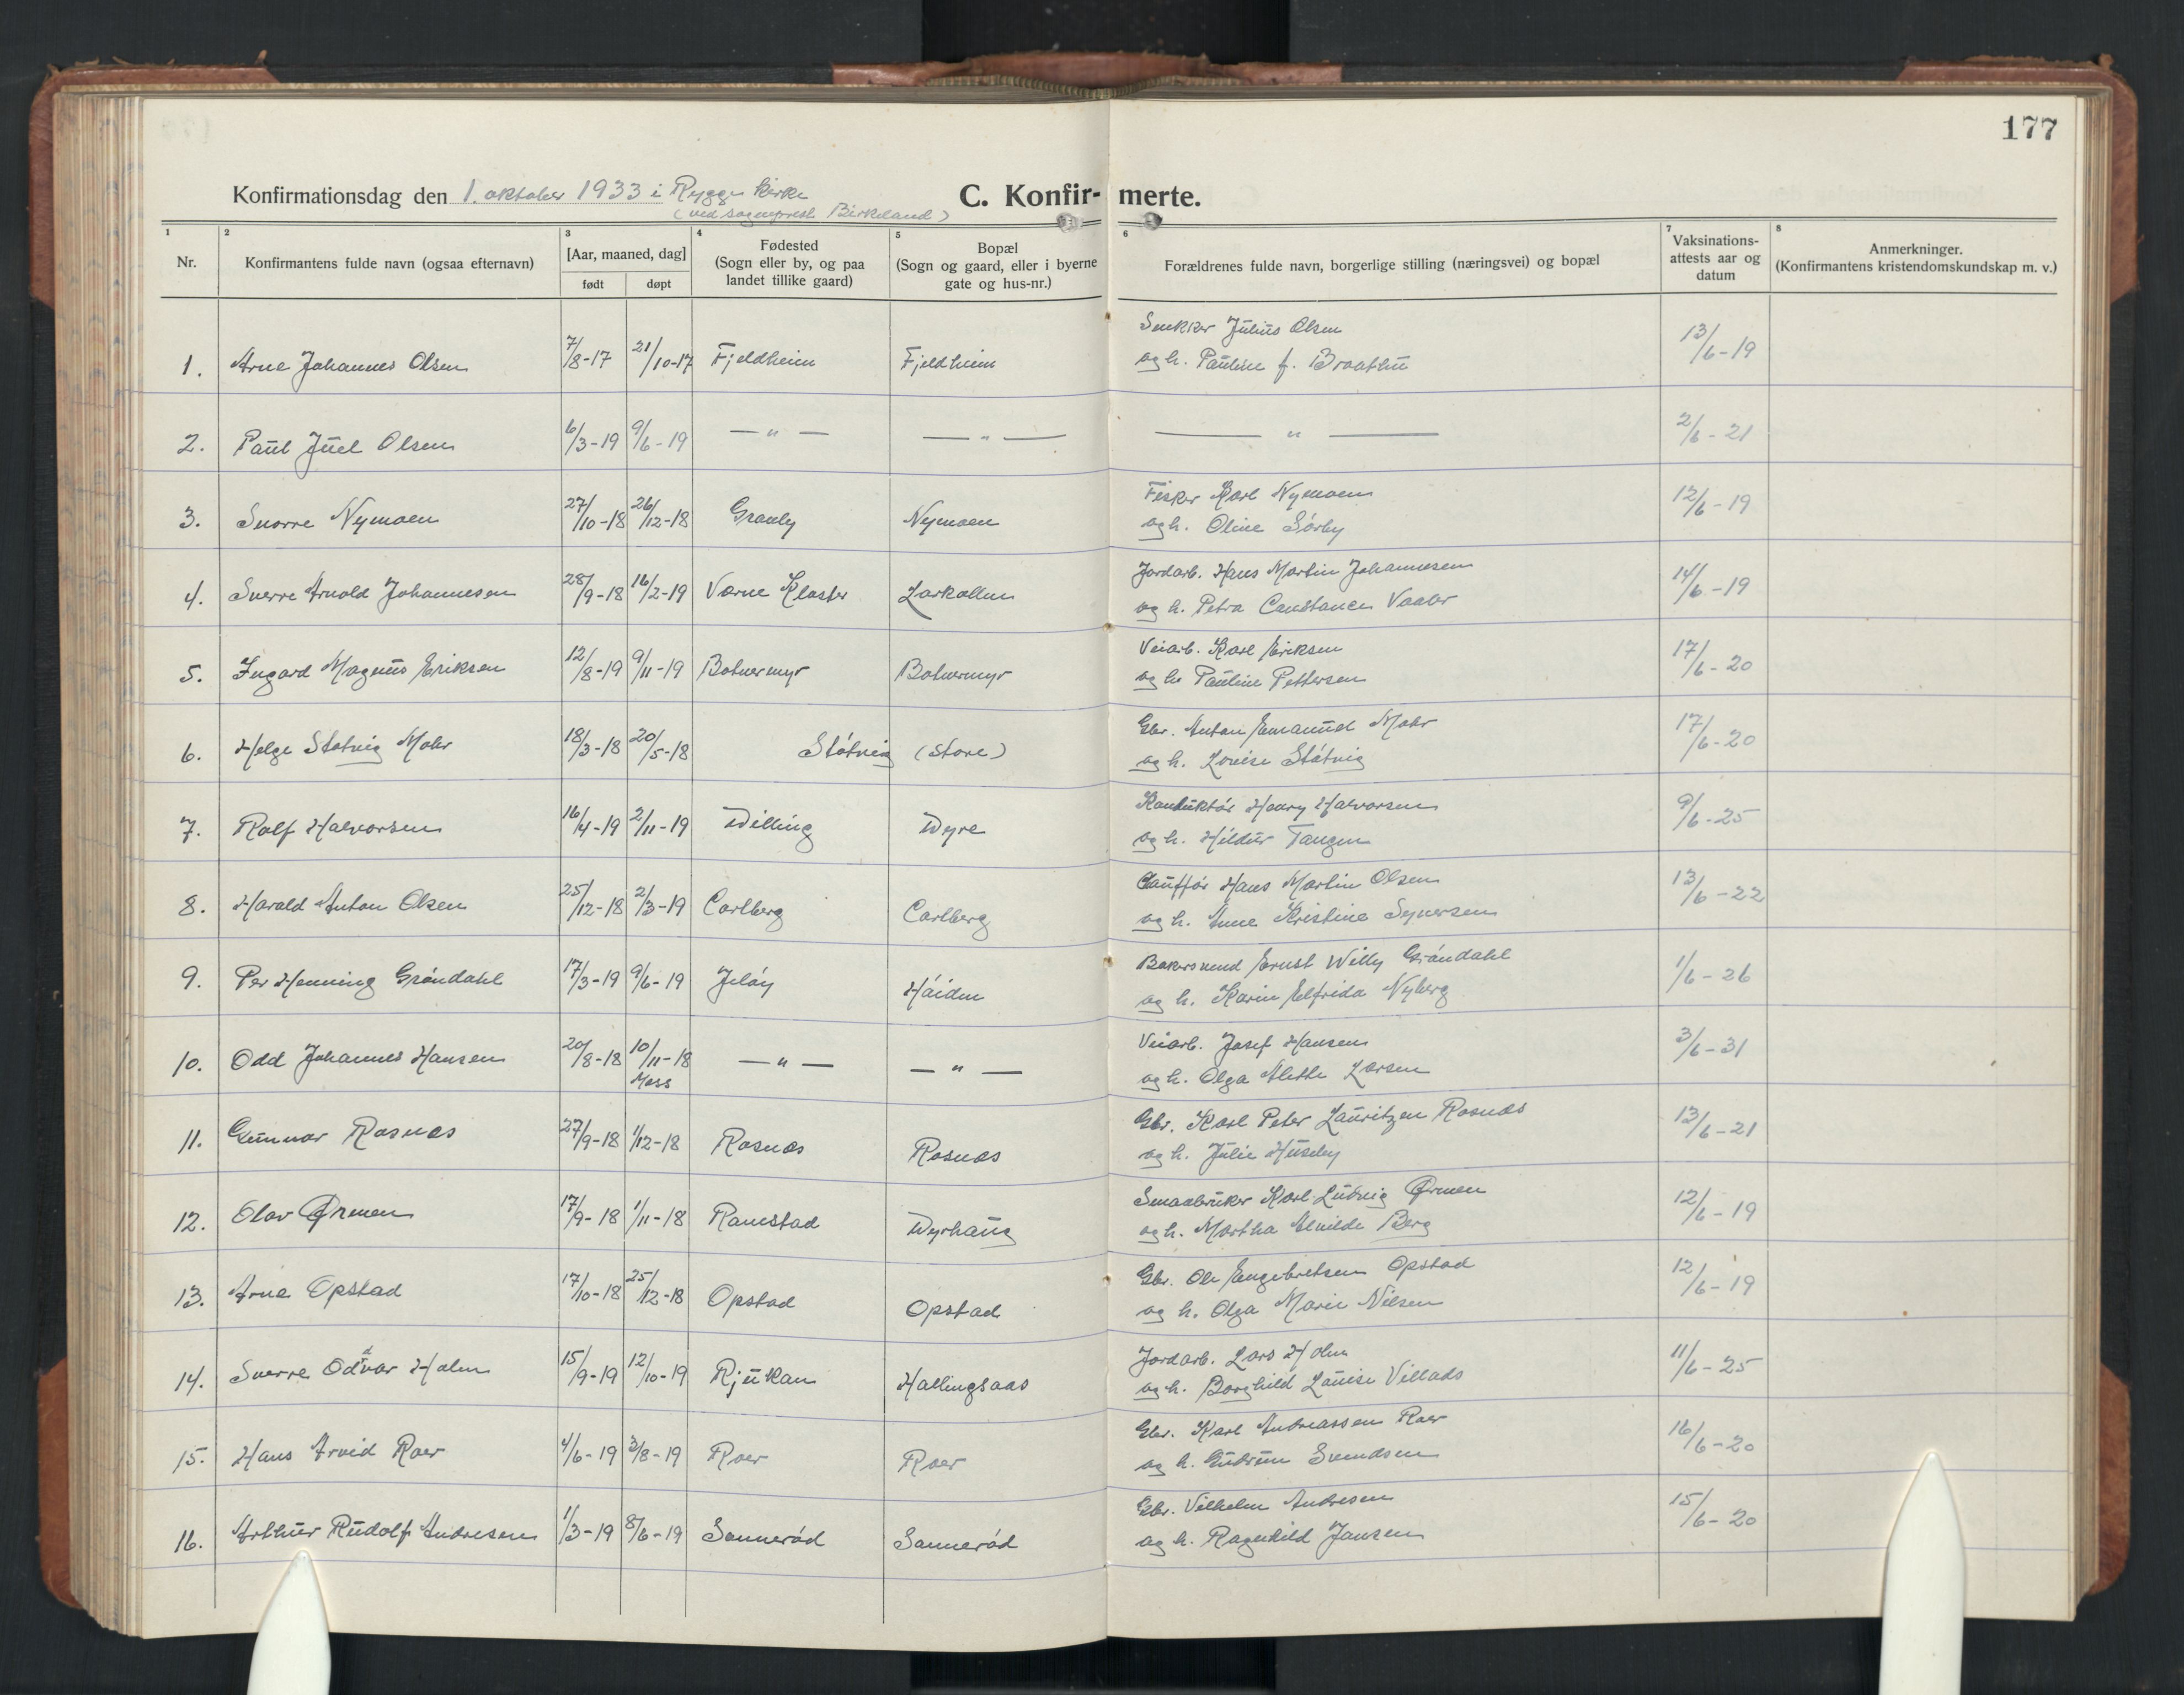 177
Konfirmationsdag den 1. oktober 1933 i Rygge kirke
(ved sogneprest Birkeland)
C. Konfir- merte.
1 2 3 4 5 6 7 8
Nr.
Konfirmantens fulde navn (ogsaa efternavn)
[Aar, maaned, dag]
født døpt
Fødested
(Sogn eller by, og paa
landet tillike gaard)
Bopæl
(Sogn og gaard, eller i byerne
gate og hus-nr.)
Forældrenes fulde navn, borgerlige stilling (næringsvei) og bopæl
Vaksinations-
attests aar og
datum
Anmerkninger.
(Konfirmantens kristendomskundskap m. v.)
1. Arne Johannes Olsen 7/8-17 21/10-17 Fjeldheim Fjeldheim Snekker Julius Olsen 13/6-19
og h. Pauline f. Braathen
2. Paul Juel Olsen 6/3-19 9/6-19 — " — — " — — " — 2/6-21
3. Snorre Nymoen 27/10-18 26/12-18 Granly Nymoen Fisker Karl Nymoen 12/6-19
og h. Oline Sörby
4. Sverre Arnold Johannesen 28/9-18 16/2-19 Værne Kloster Larkollen Jordarb. Hans Martin Johannesen 14/6-19
og h. Petra Constance Vaaler
5. Ingard Magnus Eriksen 12/8-19 9/11-19 Botnermyr Botnermyr Veiarb. Karl Eriksen 17/6-20
og h. Pauline Pettersen
6. Helge Støtvig Mohr 18/3-18 20/5-18 Støtvig (store) Gbr. Anton Emanuel Mohr 17/6-20
og h. Lovise Støtvig
7. Rolf Halvorsen 16/4-19 2/11-19 Dilling Dyre Konduktör Henry Halvorsen 9/6-25
og h. Hildur Tangen
8. Harald Anton Olsen 25/12-18 2/3-19 Carlberg Carlberg Chauffør Hans Martin Olsen 13/6-22
og h. Anne Kristine Synersen
9. Per Henning Gröndahl 17/3-19 9/6-19 Jelöy Höiden Bakersvend Ernst Willy Gröndahl 1/6-26
og h. Karin Elfrida Nyberg
10. Odd Johannes Hansen 20/8-18 10/11-18 — " — — " — Veiarb. Josef Hansen 3/6-31
Moss og h. Olga Alette Larsen
11. Gunnar Rosnæs 27/9-18 1/12-18 Rosnæs Rosnæs Gbr. Karl Peter Lauritzen Rosnæs 13/6-21
og h. Julie Huseby
12. Olav Ørmen 17/9-18 1/11-18 Ramstad Dyrhaug Smaabruker Karl Ludvig Ørmen 12/6-19
og h. Martha Alvilde Berg
13. Arne Opstad 17/10-18 25/12-18 Opstad Opstad Gbr. Ole Engebretsen Opstad 12/6-19
og h. Olga Marie Nilsen
14. Sverre Oddvar Holm 15/9-19 12/10-19 Rjukan Hallingsaas Jordarb. Lars Holm 11/6-25
og h. Borghild Louise Villads
15. Hans Arvid Roer 4/6-19 3/8-19 Roer Roer Gbr. Karl Andreassen Roer 16/6-20
og h. Gudrun Svendsen
16. Arthur Rudolf Andresen 1/3-19 8/6-19 Sonneröd Sonneröd Gbr. Vilhelm Andresen 15/6-20
og h. Ragnhild Jansen